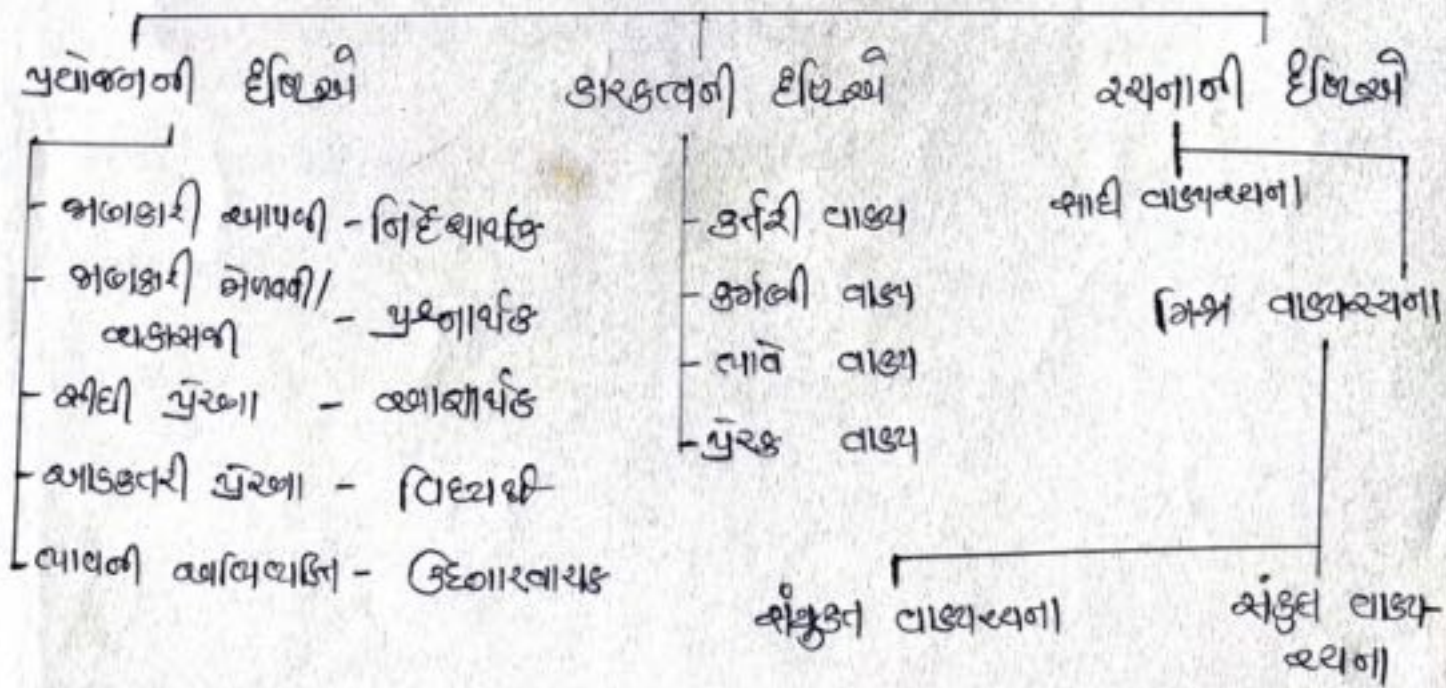 પ્રયોજનની દૃષ્ટિએ
જાણકારી આપવી - નિર્દેશાર્થક
જાણકારી મેળવવી/ - પ્રશ્નાર્થક
ચકાસવી
સીધી પ્રેરણા - આજ્ઞાર્થક
આડકતરી પ્રેરણા - વિધ્યર્થી
ભાવની અભિવ્યક્તિ - ઉદ્દગારવાચક
કારકત્વની દૃષ્ટિએ
કર્તરી વાક્ય
કર્મણી વાક્ય
ભાવે વાક્ય
પ્રેરક વાક્ય
રચનાની દૃષ્ટિએ
સાદી વાક્યરચના
મિશ્ર વાક્યરચના
સંયુક્ત વાક્યરચના
સંકુલ વાક્ય-
રચના